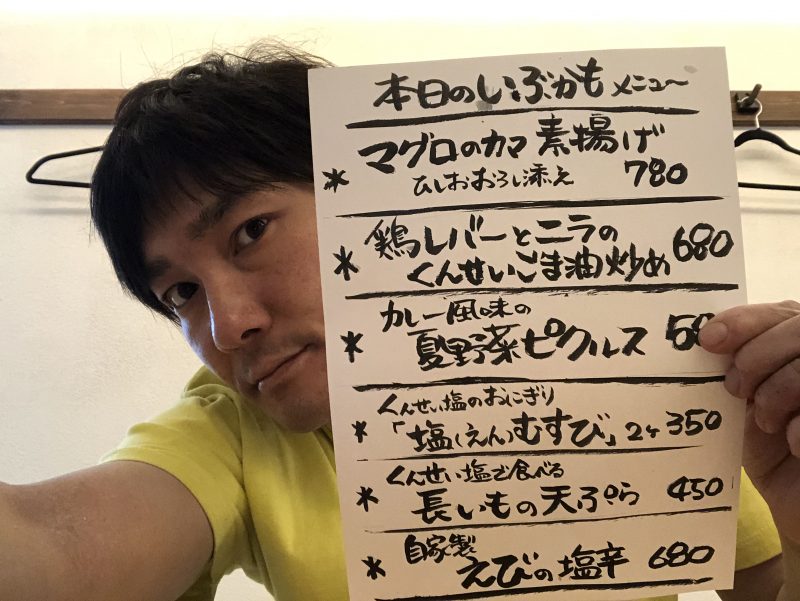 本日のいぶかもメニュ〜
* マグロのカマ 素揚げ
ひしおおろし添え 780
* 鶏レバーとニラの
くんせいごま油炒め 680
* カレー風味の
夏野菜ピクルス 58
* くんせい塩のおにぎり
「塩(えん)むすび」2ヶ 350
* くんせい塩で食べる
長いもの天ぷら 450
* 自家製
えびの塩辛 680